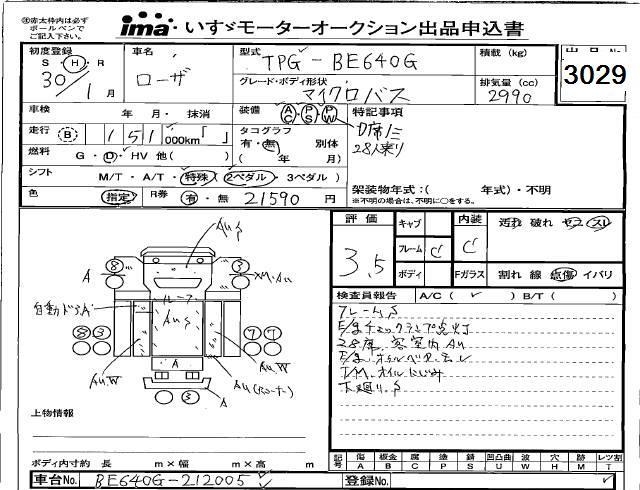 ㊟赤太枠内は必ず
ボールペンで
ご記入下さい。
ima いすゞモーターオークション出品申込書
初度登録 S・H・R 30/1月
車名 ローザ
型式 TPG-BE640G
グレード・ボディ形状 マイクロバス
積載 (kg)
排気量 (cc) 2990
出品No.
3029
車検 年 月・抹消
装備 AC PS PW
特記事項
28人乗り
走行 B 151,000km「 」
タコグラフ 有・無 別体 ( 年 月)
燃料 G・D・HV 他( )
シフト M/T・A/T・特殊 (2ペダル・3ペダル)
架装物年式:( 年式)・不明
※不明の場合は、不明に○をする。
色 指定 R券 有・無 21590 円
評価 3.5
キャブ
フレーム C
ボディ
内装 C
Fガラス
汚れ 破れ コゲ スレ
割れ 線 点傷 イバリ
検査員報告 A/C ( ✓ ) B/T ( )
フレームS
E/gチェックランプ点灯
28席、客室内AU
T/M.オイルにじみ
下廻り.S
自動ドア
ルーフ
AUS
AUS
A
8
3
8
3
7
7
AUW
AUW
A
A
3
上物情報
ボディ内寸約 長 m×幅 m×高 m
記号 傷 A 板金 B 腐 C 塗 P 錆 S 凹凸曲 U 波 W 穴 H ヤケ M レツ割 T
車台No. BE640G-212005
登録No.